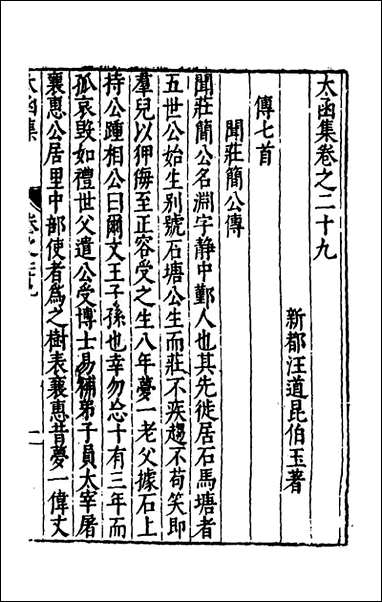 太函集卷之二十九
新都汪道昆伯玉著
傳七首
聞莊簡公傳
聞莊簡公名淵字静中鄞人也其先徙居石馬塘者
五世公始生别號石塘公生而莊不疾趨不苟笑即
羣兒以狎侮至正容受之生八年夢一老父據石上
持公踵相公曰爾文王子孫也幸勿忘十有三年而
孤哀毀如禮世父遣公受博士易補弟子員太宰屠
襄惠公居里中部使者為之樹表襄惠昔夢一偉丈
太函集
卷之二十九
一